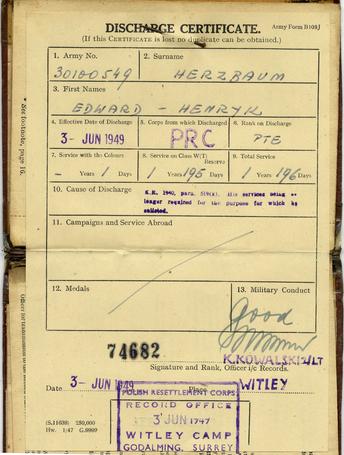 DISCHARGE CERTIFICATE.
Army Form B108J
(If this CERTIFICATE is lost no duplicate can be obtained.)
1. Army No.
2. Surname
30100549
HERZBAUM
3. First Names
EDWARD - HENRYK
4. Effective Date of Discharge
5. Corps from which Discharged
6. Rank on Discharge
3- JUN 1949
PRC
PTE
7. Service with the Colours
8. Service on Class W(T) Reserve
9. Total Service
- Years 1 Days
1 Years 195 Days
1 Years 196 Days
10. Cause of Discharge
K.R. 1940, para. His services being no
longer required for the purpose for which he
enlisted.
11. Campaigns and Service Abroad
12. Medals
13. Military Conduct
Good
74682
K. KOWALSKI LT
Signature and Rank, Officer i/c Records.
Date 3- JUN 1949
WITLEY
POLISH RESETTLEMENT CORPS
RECORD OFFICE
3 JUN 1947
WITLEY CAMP
GODALMING, SURREY
(S.11639) 250,000
Hw. 1/47
*See footnote, page 16.